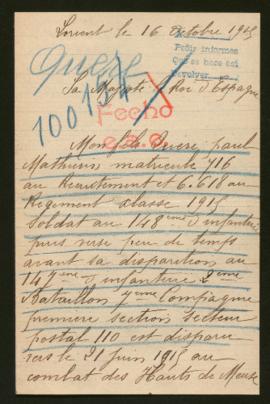 Lorient le 16 Octobre 1915
Pedir informes
Que se hace así
devolver
Quere
Sa Majesté le Roi d'Espagne
10015
Fecho
Mon fils Quere paul
Mathurin matricule 716
au Recrutement et 6.618 au
Régiment classe 1915
Soldat au 148eme d'infanterie
puis versé peu de temps
avant sa disparition au
147eme d'infanterie 2eme
Bataillon 7eme Compagnie
première section secteur
postal 110 est disparu
vers le 21 juin 1915 au
combat des Hauts de Meuse